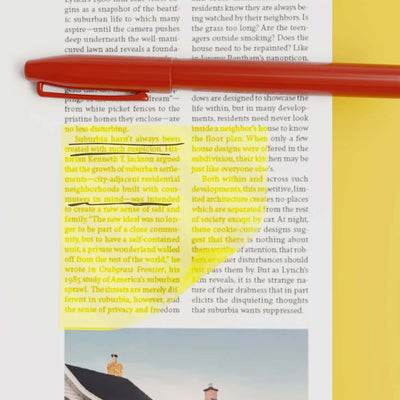 gins as a snapshot of the beatif-
ic suburban life to which many
aspire—until the camera pushes
deep underneath the well-mani-
cured lawn and reveals a founda-
dream"—
from white picket fences to the
pristine homes they enclose—are
no less disturbing.
Suburbia hasn't always been
treated with such suspicion. His-
torian Kenneth T. Jackson argued
that the growth of suburban settle-
ments—city-adjacent residential
neighborhoods built with com-
muters in mind—was intended
to create a new sense of self and
family. "The new ideal was no lon-
ger to be part of a close commu-
nity, but to have a self-contained
unit, a private wonderland walled
off from the rest of the world," he
wrote in Crabgrass Frontier, his
1985 study of America's suburban
sprawl. The threats are merely dif-
ferent in suburbia, however, and
the sense of privacy and freedom
residents know they are always be-
ing watched by their neighbors. Is
the grass too long? Are the teen-
agers outside smoking? Does the
house need to be repainted? Like
in Jeremy Bentham's panopticon,
dows are designed to showcase the
life within, but in many develop-
ments, residents need never look
inside a neighbor's house to know
the floor plan. When only a few
house designs were offered in the
subdivision, their kitchen may be
just like everyone else's.
Both within and across such
developments, this repetitive, lim-
ited architecture creates no places
which are separated from the rest
of society except by car. At night,
these cookie-cutter designs sug-
gest that there is nothing about
them worthy of attention, that rob-
bers or other disturbances should
just pass them by. But as Lynch's
film reveals, it is the strange na-
ture of their drabness in that part
elicits the disquieting thoughts
that suburbia wants suppressed.